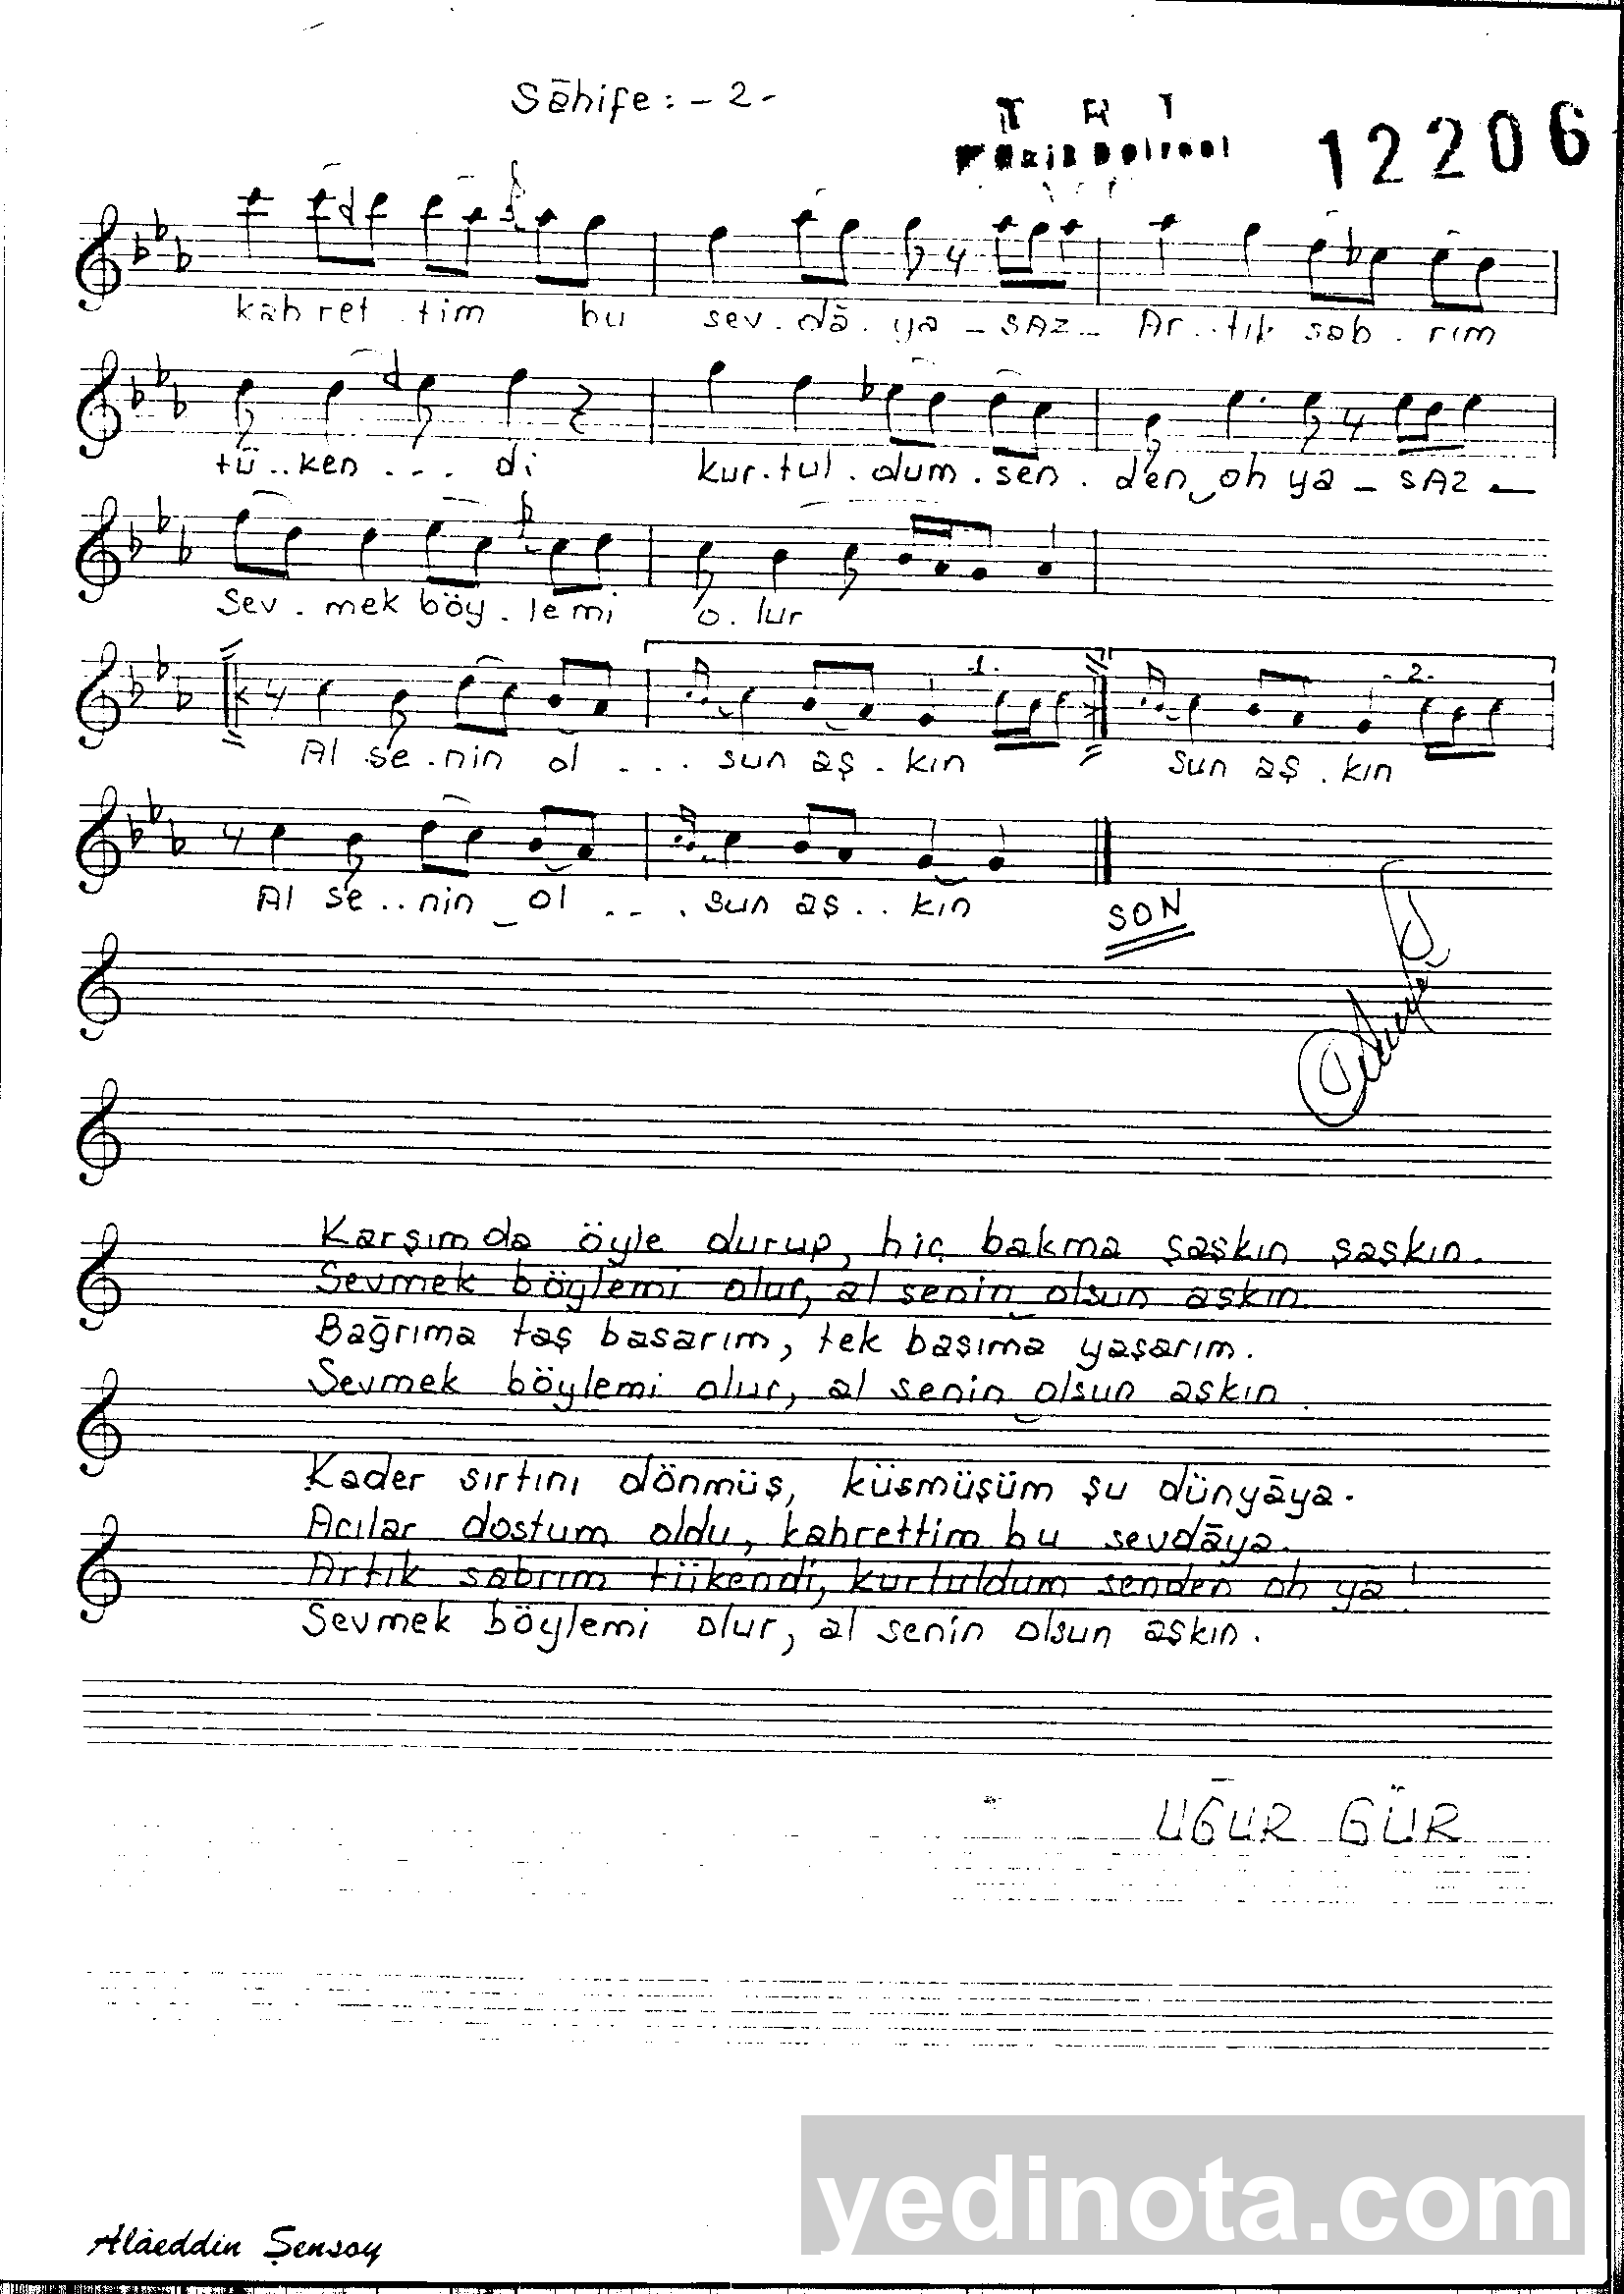 Sāhife: - 2 -
T R T
12206
kahret . tim bu sev . dā . ya _ SAZ _ Ar . . tık sab . rım
tü . . ken . . . di kur . tul . dum . sen . den oh ya _ SAZ _
Sev . mek böy . le mi o . lur
1. 2.
Al se . nin ol . . . sun aş . kın sun aş . kın
Al se . . nin ol . . . sun aş . . kın
SON
Karşımda öyle durup, hiç bakma şaşkın şaşkın.
Sevmek böylemi olur, al senin olsun aşkın.
Bağrıma taş basarım, tek başıma yaşarım.
Sevmek böylemi olur, al senin olsun aşkın.
Kader sırtını dönmüş, küsmüşüm şu dünyāya.
Acılar dostum oldu, kahrettim bu sevdāya.
Artık sabrım tükendi, kurtuldum senden oh ya!
Sevmek böylemi olur, al senin olsun aşkın.
UĞUR GÜR
yedinota.com
Alâeddin Şensoy